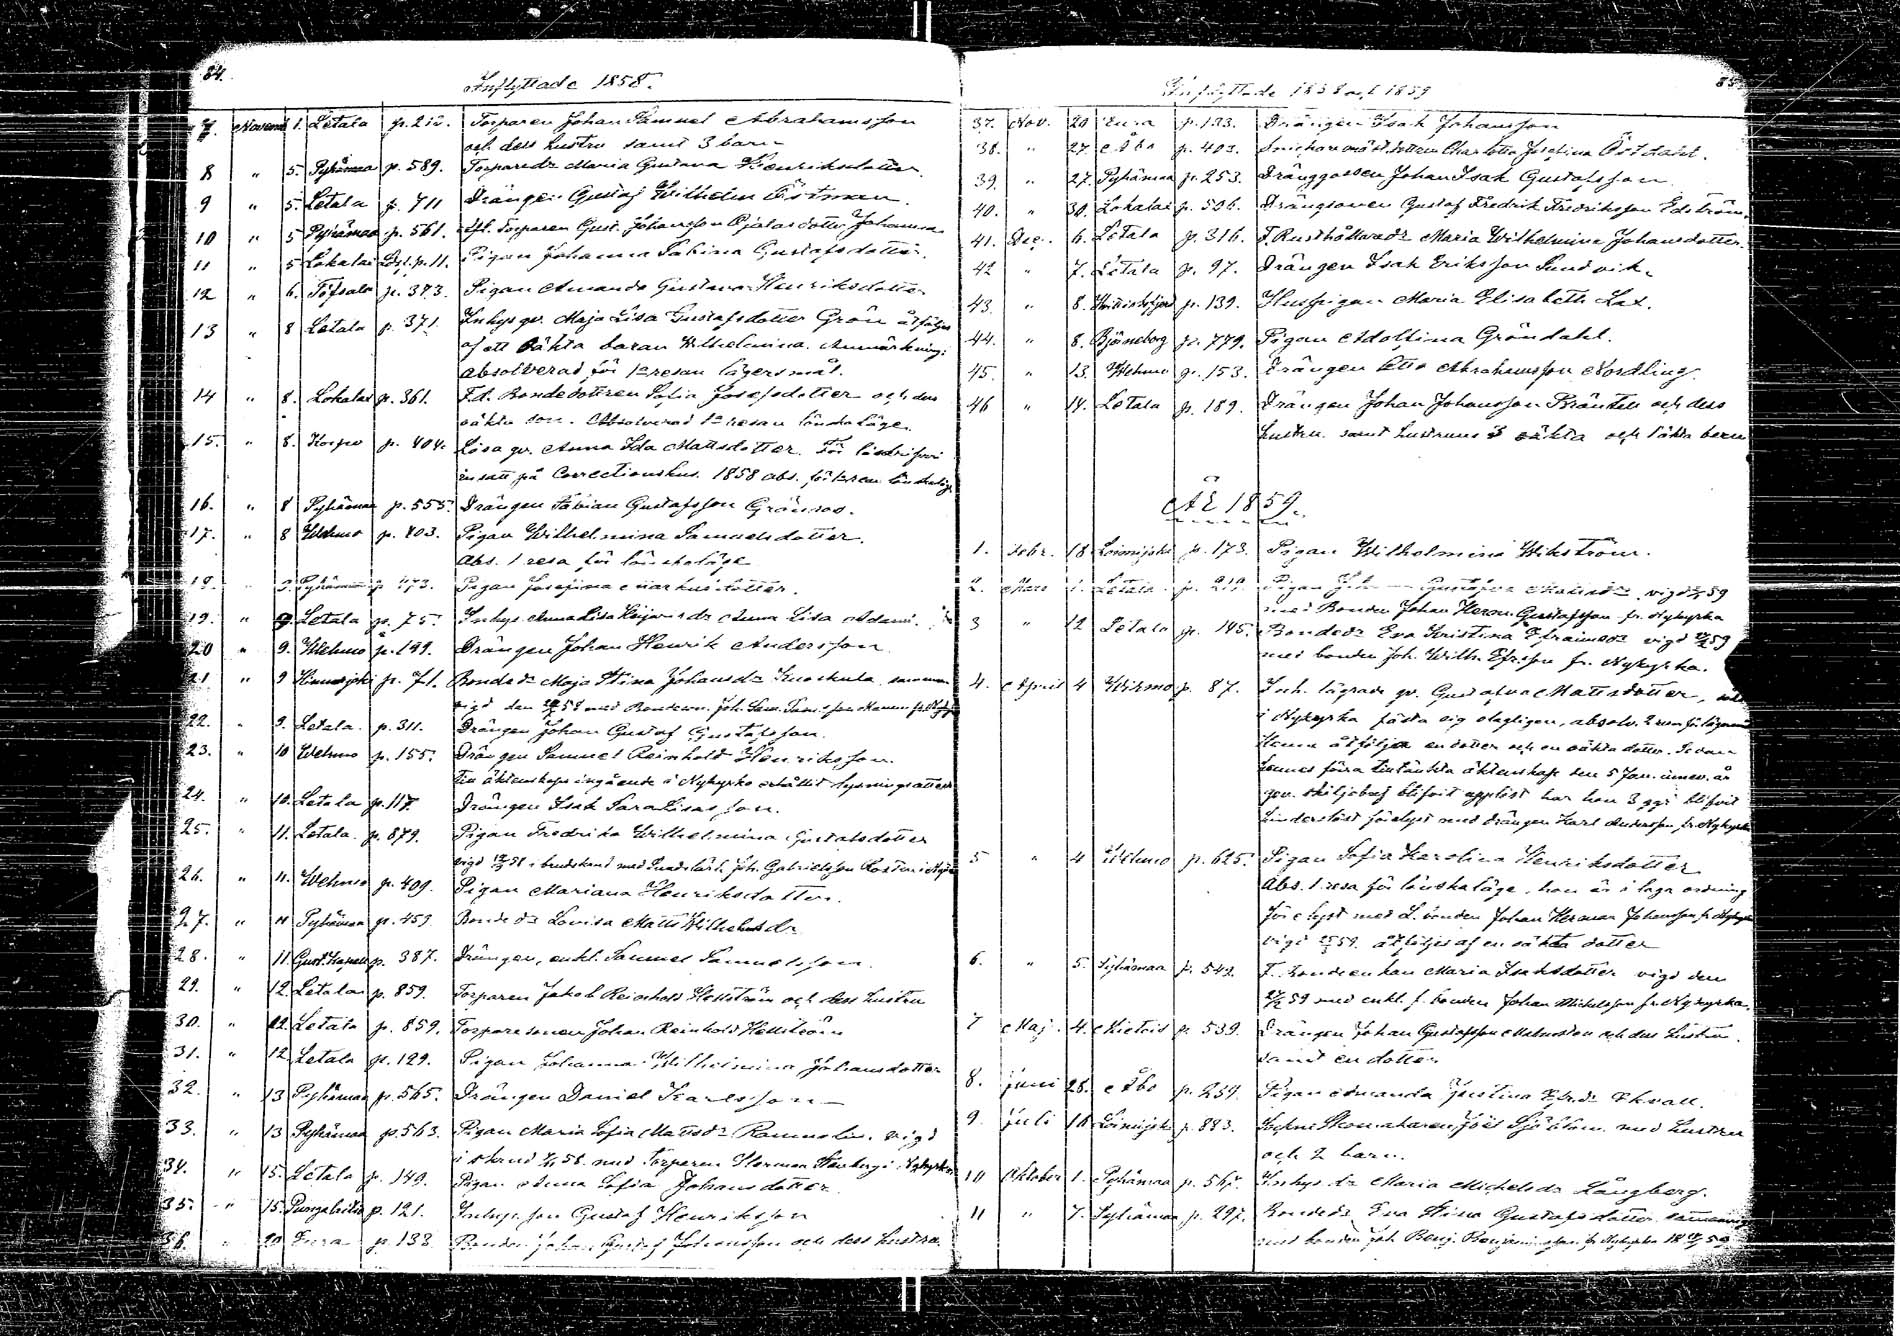 84.
Inflyttade 1858.
7. Novemb 1. Letala p. 212. Torparen Johan Samuel Abrahamsson
och dess hustru samt 3 barn
8 " 5. Pyhämaa p. 589. Torparedr Maria Gustava Henriksdotter
9 " 5. Letala p. 711 Drängen Gustaf Wilhelm Östman.
10 " 5 Pyhämaa p. 561. Torparen Gust. Johansson Ojalas dotter Johanna
11 " 5 Lokalax p. 11. Pigan Johanna Sabina Gustafsdotter.
12 " 6. Töfsala p. 373. Pigan Amanda Gustava Henriksdotter
13 " 8 Letala p. 371. Inhys qv. Maja Lisa Gustafsdotter Grön åtföljes
af ett oäkta barn Wilhelmina. Anmärkning:
absolverad för 1a resan lägersmål.
14 " 8. Lokalax p. 361. F.d. Bondedottren Sofia Josefsdotter och dess
oäkta son. Absolverad 1a resan lönskaläge.
15. " 8. Korpo p. 404. Lösa qv. Anna Ida Mattsdotter. För
insatt på Correctionshus. 1858 abs. för 1a resan lönskaläge
16. " 8 Pyhämaa p. 555. Drängen Fabian Gustafsson Grönroos.
17. " 8 Wehmo p. 403. Pigan Wilhelmina Samuelsdotter.
abs. 1 resa för lönskaläge
18. " 9. Pyhämaa p. 473. Pigan Josefina Markusdotter.
19. " 9. Letala p. 75. Inhys. Anna Lisa Anna Lisa Adami.
20 " 9. Wehmo p. 199. Drängen Johan Henrik Andersson
21 " 9 Hinnerjoki p. 71. Bondedr Maja Stina Johansdr
vigd den 58 med Bondeson. Joh. Sam.
22. " 9. Letala p. 311. Drängen Johan Gustaf Gustafsson.
23. " 10 Wehmo p. 155. Drängen Samuel Reinhold Henriksson.
Till äktenskaps ingående i Nykyrko erhållit lysningsattest
24. " 10. Letala p. 117 Drängen Isak Saralisasson.
25. " 11. Letala p. 879. Pigan Fredrika Wilhelmina Gustafsdotter
vigd 58 i brudskrud med Joh. Gabrielsson
26. " 11. Wehmo p. 409. Pigan Mariana Henriksdotter.
27. " 11 Pyhämaa p. 459 Bondedr Lovisa Matts Wilhelmsdr
28. " 11 Gust. Kapell p. 387. Drängen, enkl. Samuel Samuelsson.
29. " 12 Letala p. 859. Torparen Jakob Reinhold Hellström och dess hustru
30. " 12 Letala p. 859. Torparesonen Johan Reinhold Hellström
31. " 12 Letala p. 129. Pigan Johanna Wilhelmina Johansdotter
32. " 13 Pyhämaa p. 565. Drängen Daniel Karlsson
33. " 13 Pyhämaa p. 563. Pigan Maria Sofia Mattsdr vigd
i skrud 58. med Torparen Herman i Nykyrko
34. " 15. Letala p. 149. Pigan Anna Sofia Johansdotter
35. " 15. Pungalaitio p. 121. Inhys. son Gustaf Henriksson
36. " 20 Eura p. 133 Bonden Johan Gustaf Johansson och dess hustru
85
Inflyttade 1858 och 1859
37. Nov. 20 Eura p. 133. Drängen Isak Johansson
38. " 27. Åbo p. 403. Charlotta Josefina Östdahl.
39. " 27. Pyhämaa p. 253. Dränggossen Johan Isak Gustafsson
40. " 30. Lokalax p. 506. Drängsonen Gustaf Fredrik Fredriksson Edström.
41. Dec. 6. Letala p. 316. F. Rusthållaredr Maria Wilhelmina Johansdotter
42 " 7. Letala p. 97. Drängen Isak Eriksson Sundvik.
43. " 8. p. 139. Huspigan Maria Elisabeth Lax.
44. " 8. Björneborg p. 779. Pigan Adolfina Gröndahl.
45. " 13. Wehmo p. 153. Drängen Otto Abrahamsson Nordling.
46 " 14. Letala p. 189. Drängen Johan Johansson och dess
hustru samt hustruns 3 oäkta och 1 äkta barn
År 1859.
1. Febr. 18 Loimijoki p. 173. Pigan Wilhelmina Wikström.
2. Mars 1. Letala p. 210. Pigan Gustafva vigd 59
med Bonden Johan Herm. Gustafsson fr. Nykyrka
3 " 12 Letala p. 145. Bondedr Eva Kristina Efraimsdr vigd 59
med bonden Joh. Wilh. fr. Nykyrka.
4. April 4 Wehmo p. 87. Inh. lägrade qv. Gustafva Mattsdotter,
i Nykyrka fästa sig olagligen, absolv. 2 resan för lägersmål
Henne åtfölja en dotter och en oäkta dotter. Sedan
hennes förra äktenskap den 5 Jan. innev. år
gen. skiljobref blifvit upplöst har hon 3 ggr blifvit
hinderslöst förelyst med drängen Karl Andersson fr. Nykyrka
5 " 4 Wehmo p. 625. Pigan Sofia Karolina Henriksdotter
Abs. 1. resa för lönskaläge, hon är i laga ordning
förelyst med L. bonden Johan Herman Johansson fr. Nykyrka
vigd 59. åtföljes af en oäkta dotter
6. " 5. Pyhämaa p. 549. F. Bondeenkan Maria Isaksdotter vigd den
59 med enkl. f. bonden Johan Mickelsson fr. Nykyrka.
7 Maj. 4. Mietois p. 539. Drängen Johan Gustafsson och dess hustru.
samt en dotter
8. juni 28. Åbo p. 259. Pigan Amanda Justina Ekvall.
9. juli 16 Loimijoki p. 883. Sockne Skomakaren Joël Sjöblom. med hustru
och 2 barn.
10 Oktober 1. Pyhämaa p. 567. Inhys. dr Maria Michelsdr Långberg.
11 " 7. Pyhämaa p. 297. Bondedr Eva Stina Gustafsdotter
med bonden Joh. Benj. Benjaminsson fr. Nykyrka 59